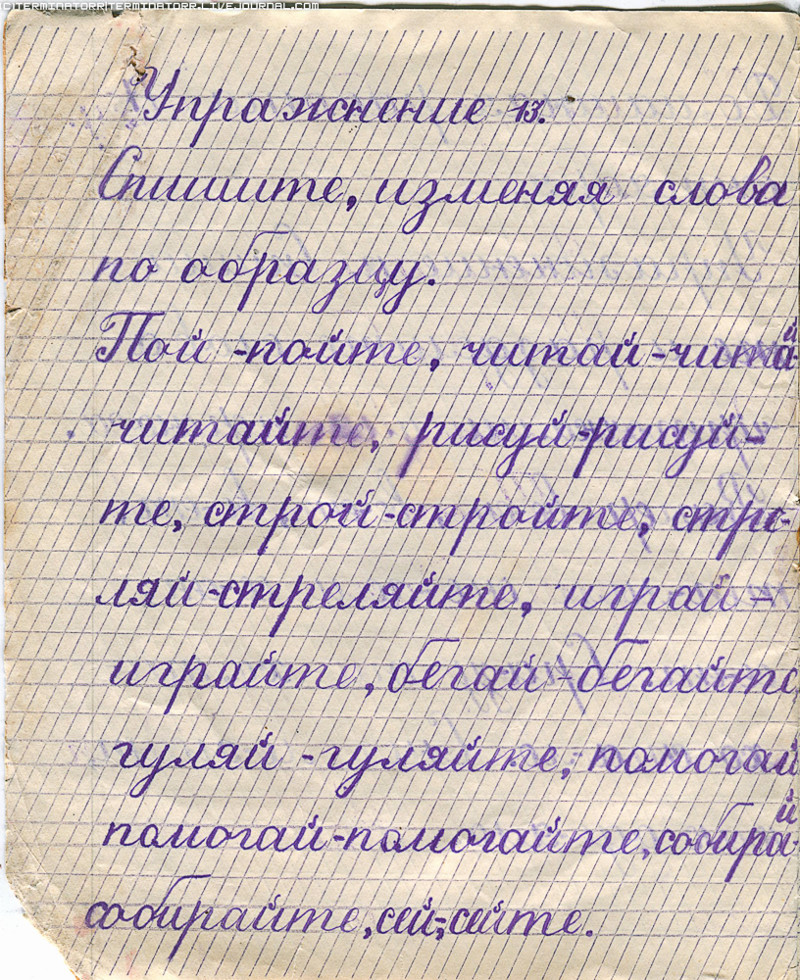 (C)TERMINATORR|TERMINATORR.LIVEJOURNAL.COM
Упражнение 13.
Спишите, изменяя слова
по образцу.
Пой -пойте, читай-читай-
читайте, рисуй-рисуй-
те, строй-стройте, стре-
ляй-стреляйте, играй -
играйте, бегай -бегайте
гуляй -гуляйте, помогай
помогай-помогайте, собирай-
собирайте, сей-сейте.